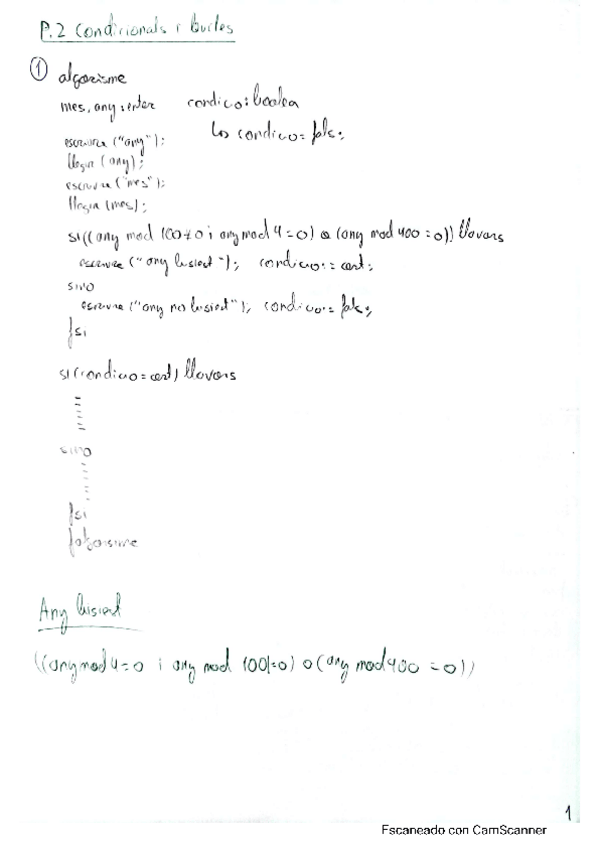 P.2 Condicionals i bucles
1 algorisme
mes, any: enter condicio: boolea
condicio = fals;
escriure ("any");
llegir (any);
escriure ("mes");
llegir (mes);
si((any mod 100≠0 i any mod 4 = 0) o (any mod 400 = 0)) llavors
escriure ("any bisiest"); condicio:= cert;
sino
escriure ("any no bisiest"); condicio:= fals;
fsi
si (condicio = cert) llavors
sino
fsi
falgorisme
Any bisiest
((any mod 4 = 0 i any mod 100!=0) o (any mod 400 = 0))
1
Escaneado con CamScanner